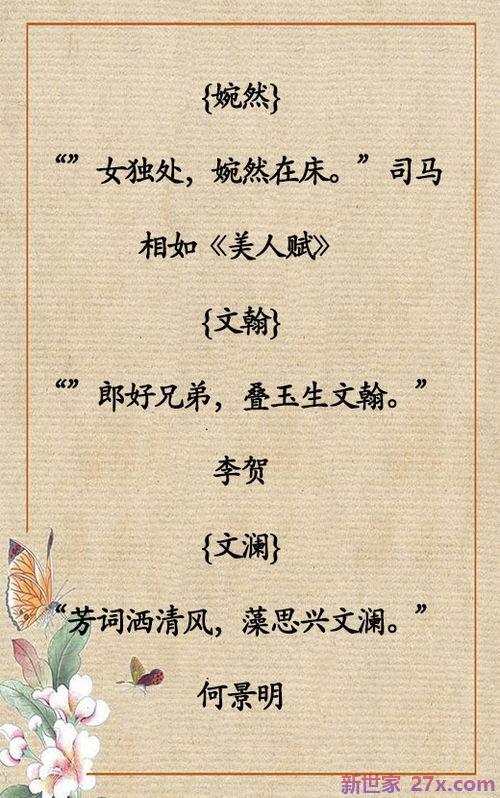 {婉然}
“”女独处，婉然在床。”司马
相如《美人赋》
{文翰}
“”郎好兄弟，叠玉生文翰。”
李贺
{文澜}
“芳词洒清风，藻思兴文澜。”
何景明
新世家 27x.com